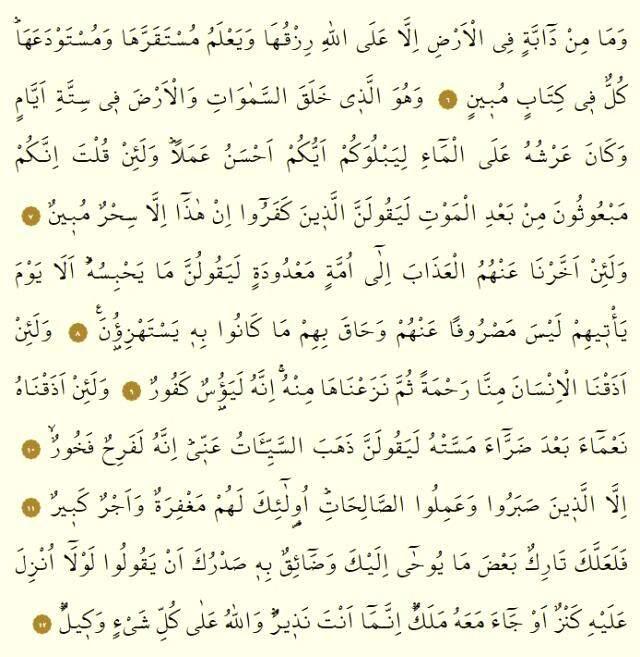 وَمَا مِنْ دَٓابَّةٍ فِي الْاَرْضِ اِلَّا عَلَى اللّٰهِ رِزْقُهَا وَيَعْلَمُ مُسْتَقَرَّهَا وَمُسْتَوْدَعَهَاۜ
كُلٌّ ف۪ي كِتَابٍ مُب۪ينٍ ٦ وَهُوَ الَّذ۪ي خَلَقَ السَّمٰوَاتِ وَالْاَرْضَ ف۪ي سِتَّةِ اَيَّامٍ
وَكَانَ عَرْشُهُ عَلَى الْمَٓاءِ لِيَبْلُوَكُمْ اَيُّكُمْ اَحْسَنُ عَمَلًاۜ وَلَئِنْ قُلْتَ اِنَّكُمْ
مَبْعُوثُونَ مِنْ بَعْدِ الْمَوْتِ لَيَقُولَنَّ الَّذ۪ينَ كَفَرُٓوا اِنْ هٰذَٓا اِلَّا سِحْرٌ مُب۪ينٌ ٧
وَلَئِنْ اَخَّرْنَا عَنْهُمُ الْعَذَابَ اِلٰٓى اُمَّةٍ مَعْدُودَةٍ لَيَقُولُنَّ مَا يَحْبِسُهُۜ اَلَا يَوْمَ
يَأْت۪يهِمْ لَيْسَ مَصْرُوفًا عَنْهُمْ وَحَاقَ بِهِمْ مَا كَانُوا بِه۪ يَسْتَهْزِؤُ۫نَ۟ ٨ وَلَئِنْ
اَذَقْنَا الْاِنْسَانَ مِنَّا رَحْمَةً ثُمَّ نَزَعْنَاهَا مِنْهُۚ اِنَّهُ لَيَؤُ۫سٌ كَفُورٌ ٩ وَلَئِنْ اَذَقْنَاهُ
نَعْمَٓاءَ بَعْدَ ضَرَّٓاءَ مَسَّتْهُ لَيَقُولَنَّ ذَهَبَ السَّيِّـَٔاتُ عَنّ۪يۜ اِنَّهُ لَفَرِحٌ فَخُورٌۙ ١٠
اِلَّا الَّذ۪ينَ صَبَرُوا وَعَمِلُوا الصَّالِحَاتِۜ اُو۬لٰٓئِكَ لَهُمْ مَغْفِرَةٌ وَاَجْرٌ كَب۪يرٌ ١١
فَلَعَلَّكَ تَارِكٌ بَعْضَ مَا يُوحٰٓى اِلَيْكَ وَضَٓائِقٌ بِه۪ صَدْرُكَ اَنْ يَقُولُوا لَوْلَٓا اُنْزِلَ
عَلَيْهِ كَنْزٌ اَوْ جَٓاءَ مَعَهُ مَلَكٌۜ اِنَّمَٓا اَنْتَ نَذ۪يرٌۜ وَاللّٰهُ عَلٰى كُلِّ شَيْءٍ وَك۪يلٌۜ ١٢